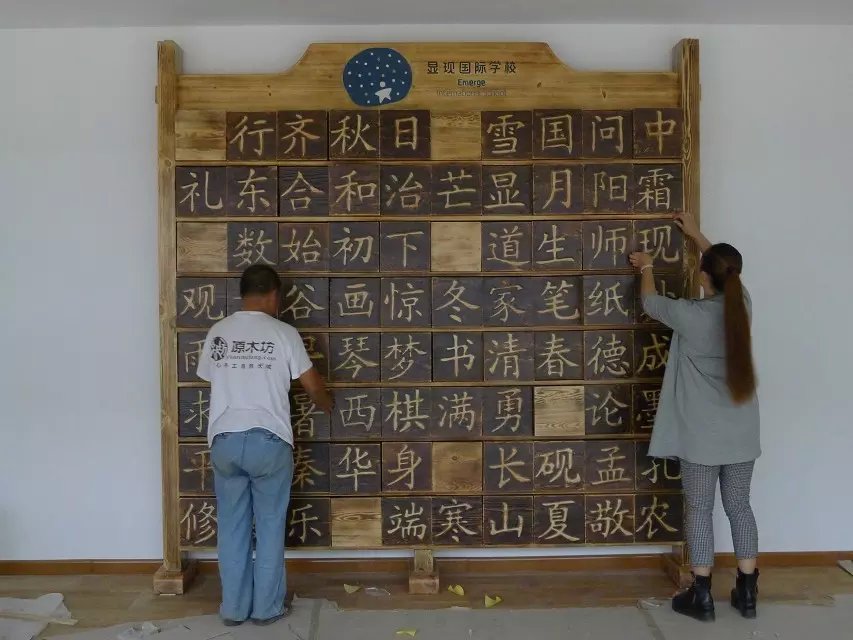 显现国际学校
Emerge
International School
行齐秋日雪国问中
礼东合和治芒显月阳霜
数始初下道生师现
观谷画惊冬家笔纸
雨琴梦书清春德成
暑西棋满勇论墨
秦华身长砚孟孔
修乐端寒山夏敬农
原木坊